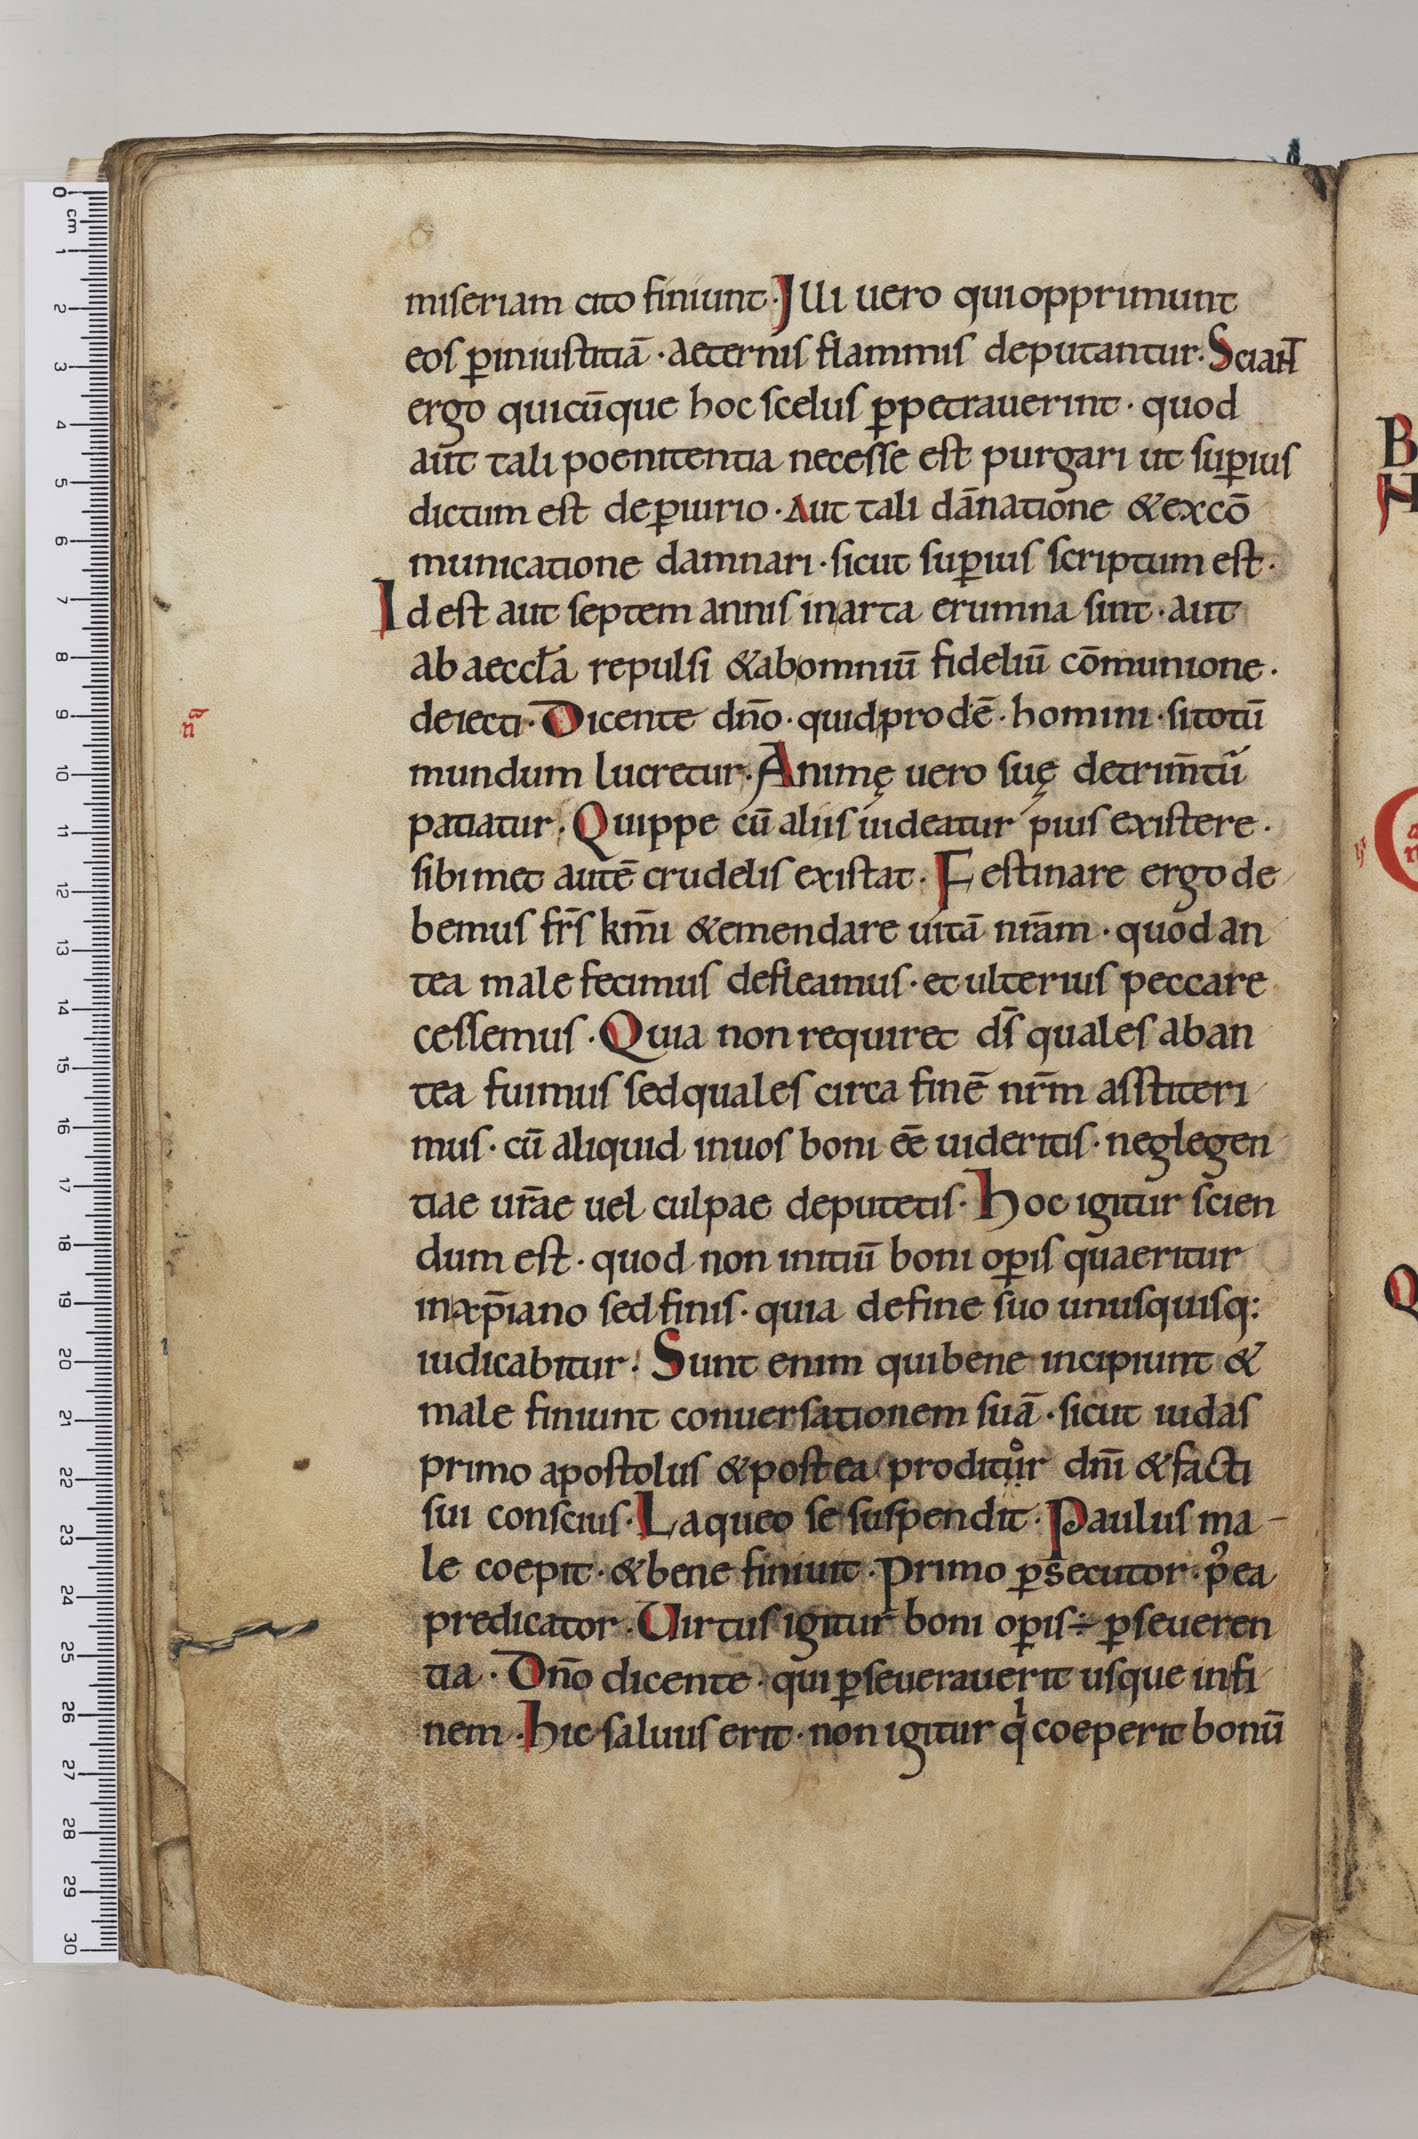 miseriam cito finiunt · Illi uero qui opprimunt
eos ꝑ iniustitiā · aeternis flammis deputantur · Sciant
ergo quicūque hoc scelus ꝑpetrauerint · quod
aut tali poenitentia necesse est purgari ut suꝑius
dictum est de ꝑiurio · Aut tali dānatione & excō
municatione damnari · sicut suꝑius scriptum est ·
Id est aut septem annis in arta erumna sint · aut
ab aeccła repulsi & ab omniū fideliū cōmunione ·
deiecti · Dicente dn̄o · quid prodē · homini · si totū
mundum lucretur · Animę uero suę detrim̄tū
patiatur · Quippe cū aliis uideatur p̄ius existere ·
sibimet autē crudelis existat · Festinare ergo de
bemus fr̄s km̄i & emendare uitā nr̄am · quod an
tea male fecimus defleamus · et ulterius peccare
cessemus · Quia non requiret ds̄ quales ab an
tea fuimus sed quales circa finē nr̄m asstiteri
mus · cū aliquid in uos boni eē uideritis · neglegen
tiae ur̄ae uel culpae deputetis · Hoc igitur scien
dum est · quod non initiū boni oꝑis quaeritur
in xp̄iano sed finis · quia de fine suo unusquisq:
iudicabitur · Sunt enim qui bene incipiunt &
male finiunt conuersationem suā · sicut iudas
primo apostolus & postea proditur dn̄i & facti
sui conscius · Laqueo se suspendit · Paulus ma-
le coepit · & bene finiuit · primo ꝑsecutor · p᾿ea
predicator · Uirtus igitur boni oꝑis ÷ ꝑseueren
tia · Dn̄o dicente · qui ꝑseuerauerit usque in fi
nem · hic saluus erit · non igitur q̍ coeperit bonū
0
cm
1
2
3
4
5
6
7
8
9
10
11
12
13
14
15
16
17
18
19
20
21
22
23
24
25
26
27
28
29
30
B
Q